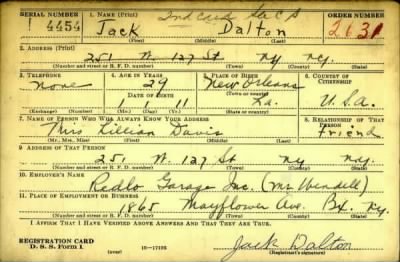 SERIAL NUMBER 1. NAME (Print) 2nd card See C B ORDER NUMBER
4454 Jack Dalton 2631
(First) (Middle) (Last)
2. ADDRESS (Print)
251 W. 127 St NY NY.
(Number and street or R. F. D. number) (Town) (County) (State)
3. TELEPHONE 4. AGE IN YEARS 5. PLACE OF BIRTH 6. COUNTRY OF CITIZENSHIP
none 29 New Orleans
DATE OF BIRTH (Town or county)
1 1 11 La. U.S.A.
(Exchange) (Number) (Mo.) (Day) (Yr.) (State or country)
7. NAME OF PERSON WHO WILL ALWAYS KNOW YOUR ADDRESS 8. RELATIONSHIP OF THAT PERSON
Miss Lillian Davis friend
(Mr., Mrs., Miss) (First) (Middle) (Last)
9. ADDRESS OF THAT PERSON
251 W. 127 St NY NY.
(Number and street or R. F. D. number) (Town) (County) (State)
10. EMPLOYER'S NAME
Redlo Garage Inc. (Mr Wendell)
11. PLACE OF EMPLOYMENT OR BUSINESS
1865 Mayflower Ave. Bx. Ny.
(Number and street or R. F. D. number) (Town) (County) (State)
I AFFIRM THAT I HAVE VERIFIED ABOVE ANSWERS AND THAT THEY ARE TRUE.
REGISTRATION CARD
D. S. S. Form 1 (over) 16—17105 Jack Dalton
(Registrant's signature)